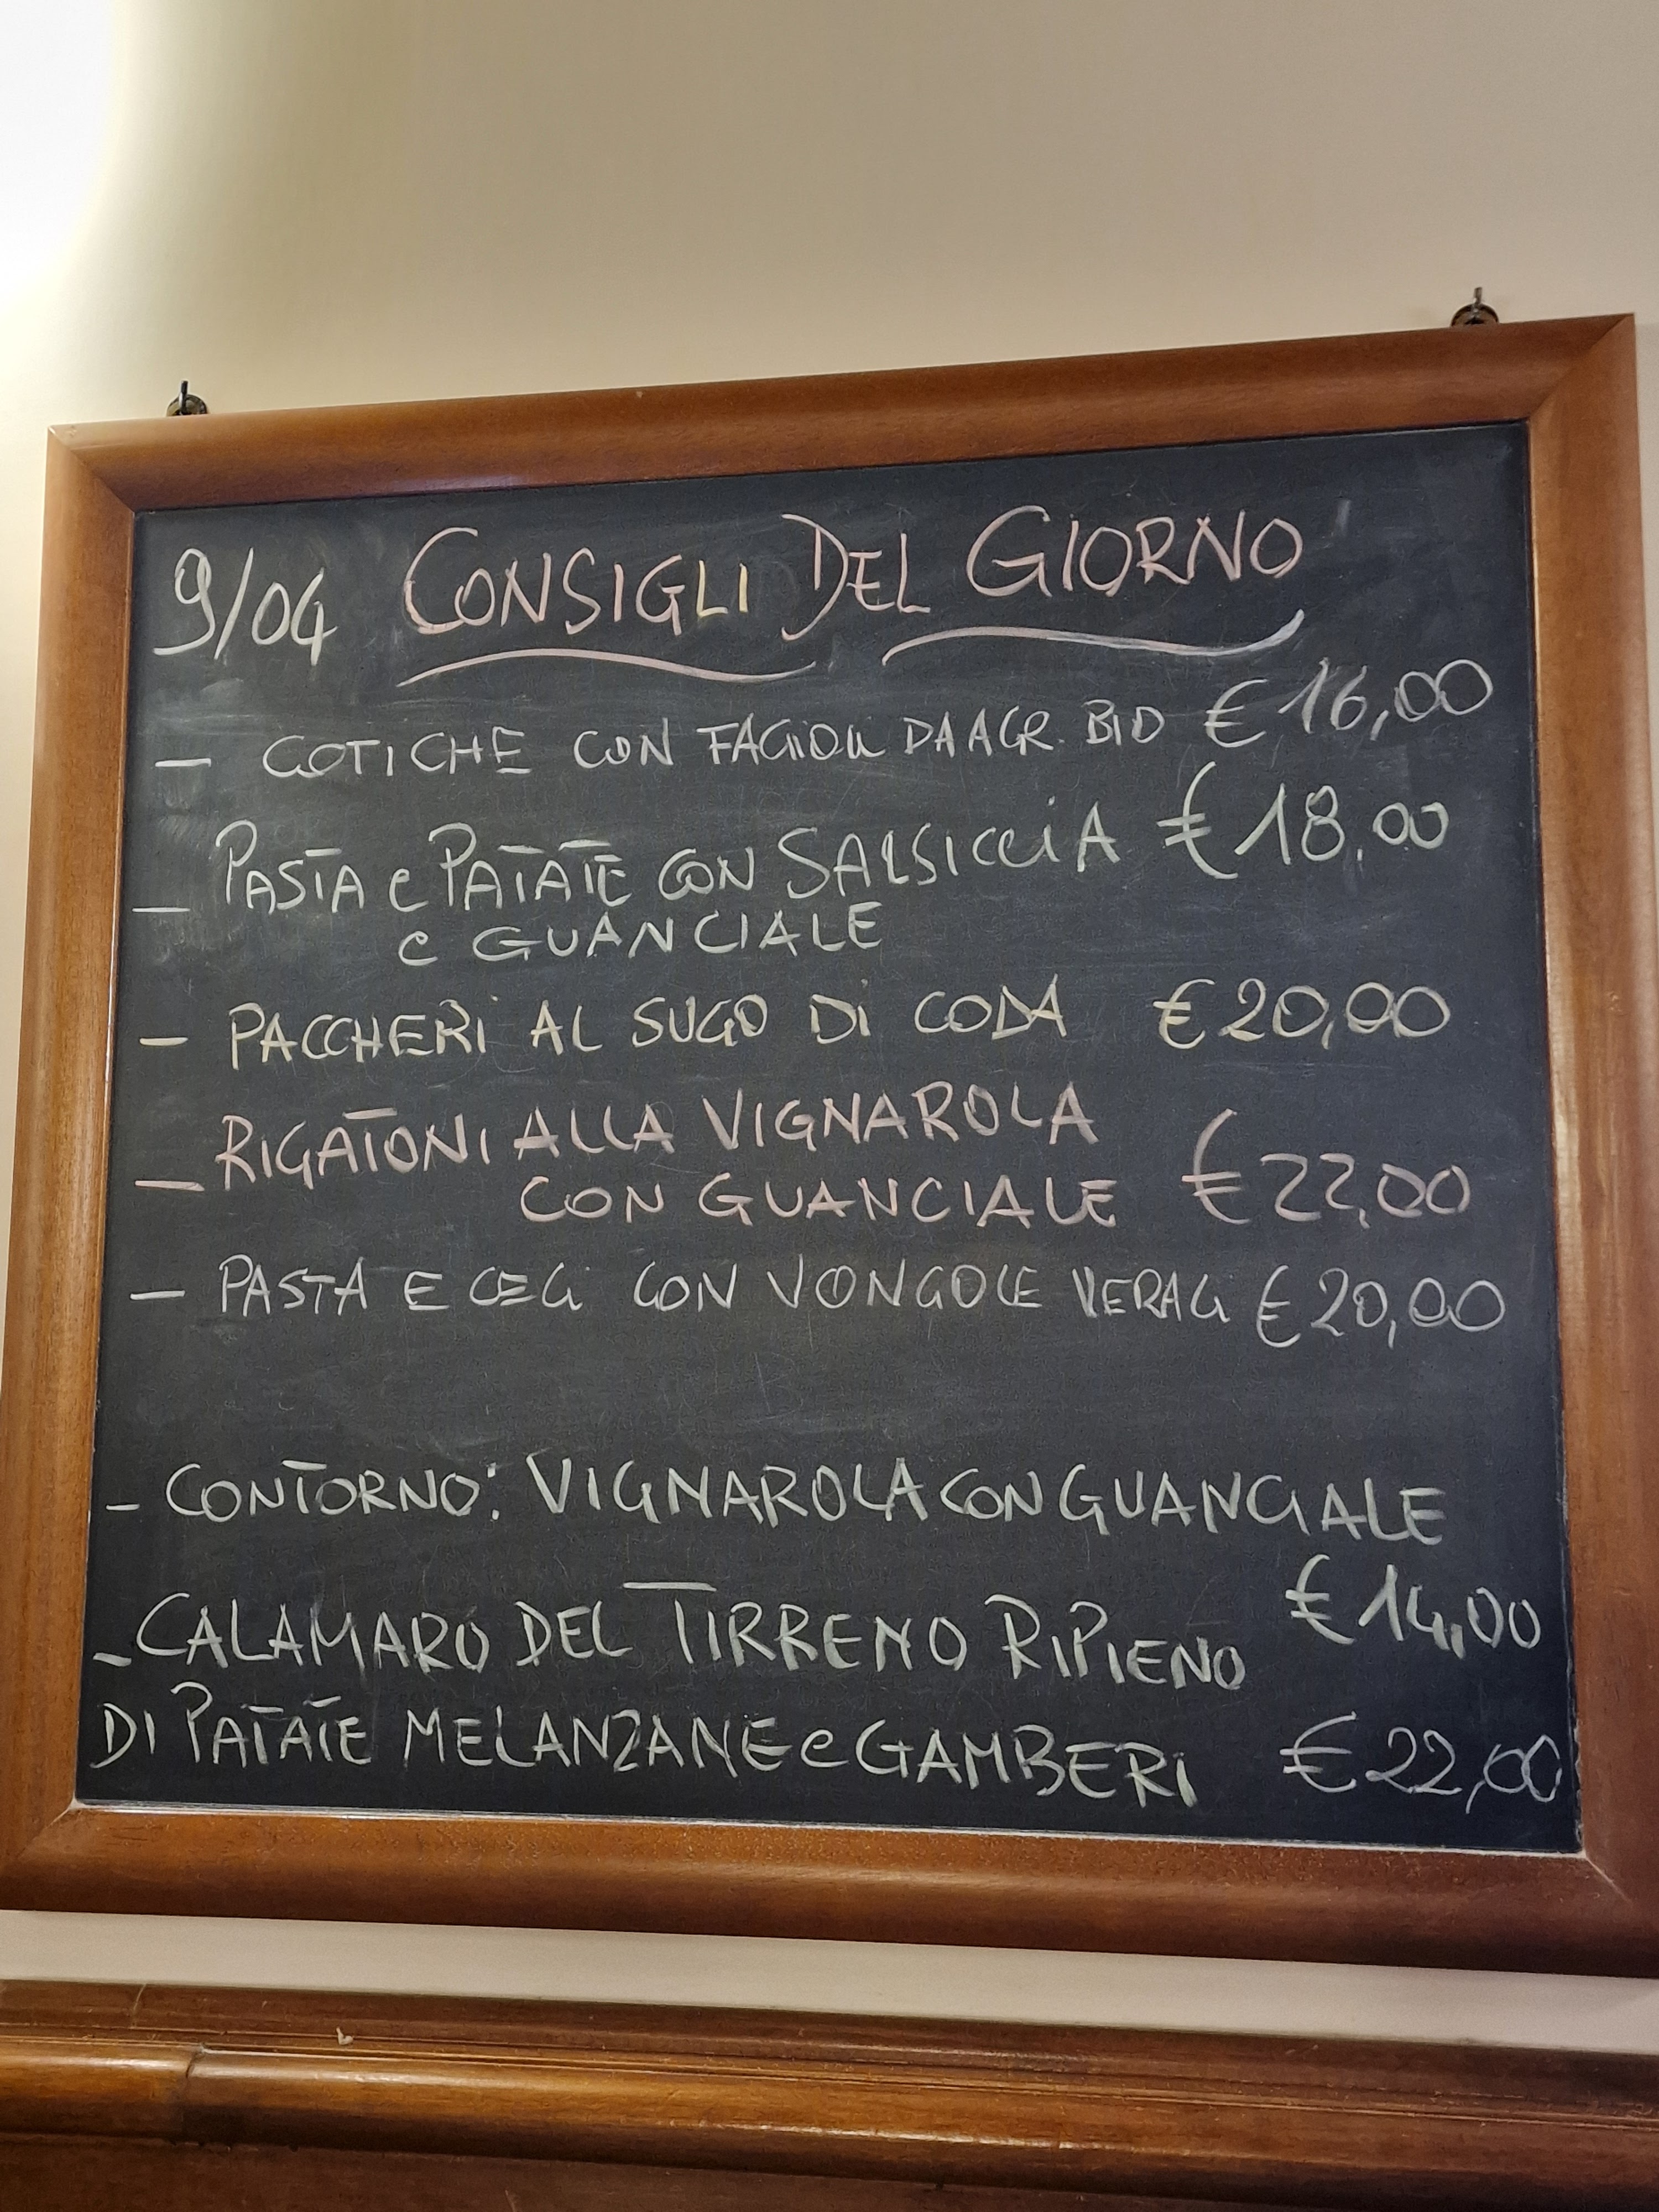 9/04 CONSIGLI DEL GIORNO
- COTICHE CON FAGIOLI DA AGR. BIO € 16,00
- PASTA e PATATE CON SALSICCIA € 18,00
e GUANCIALE
- PACCHERI AL SUGO DI CODA € 20,00
- RIGATONI ALLA VIGNAROLA
CON GUANCIALE € 22,00
- PASTA E CECI CON VONGOLE VERACI € 20,00
- CONTORNO: VIGNAROLA CON GUANCIALE
€ 14,00
- CALAMARO DEL TIRRENO RIPIENO
DI PATATE MELANZANE e GAMBERI € 22,00